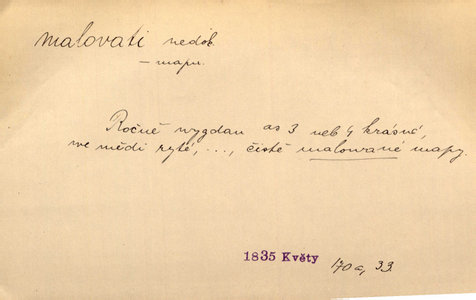 malovati nedok.
— mapu.
Ročně wygdan as 3 neb 4 krásné,
we mědi ryté, ..., čistě malowané mapy.
1835 Květy 170a, 33.